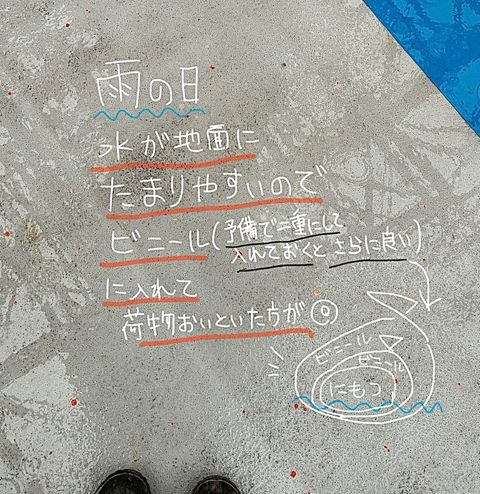 雨の日
水が地面に
たまりやすいので
ビニール(予備で二重にして
入れておくと さらに良い)
に入れて
荷物おいといた方が◎
ビニール
ビニール
にもつ